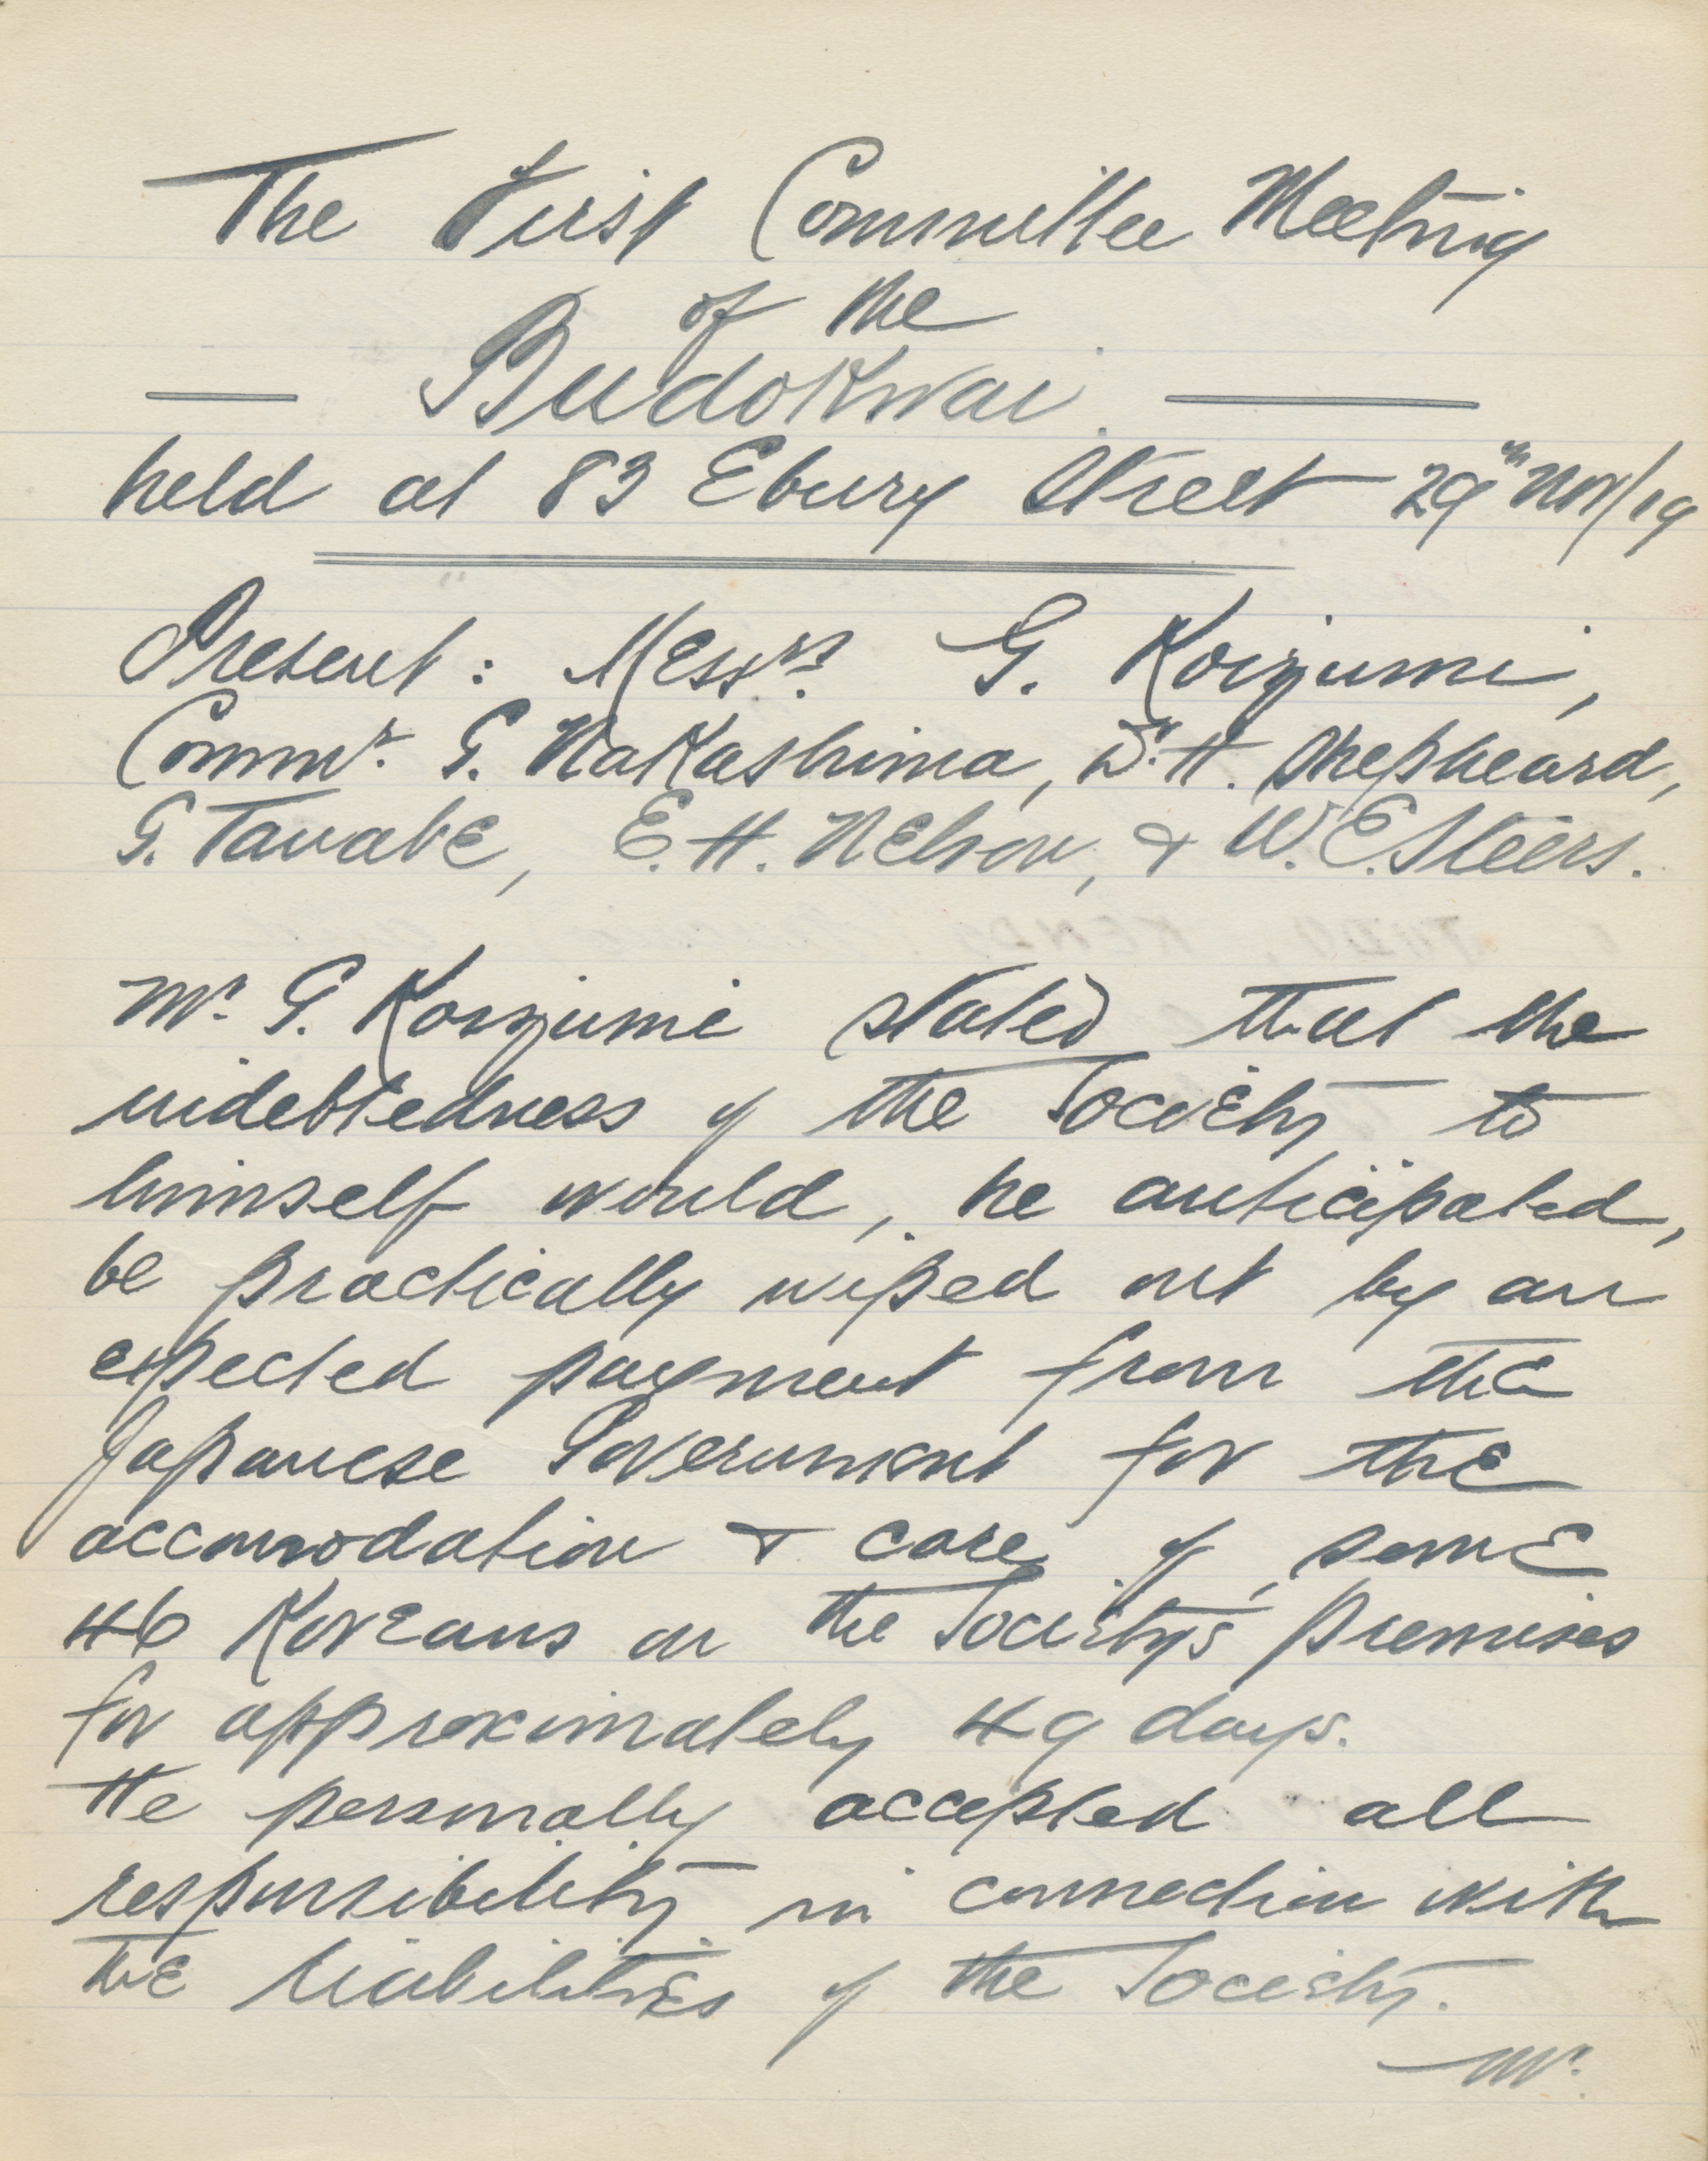 The First Committee Meeting
of the
Budokwai
held at 83 Ebury Street 29th Nov/19
Present: Messrs. G. Koizumi,
Commr. G. Nakashima, W. H. Shepheard,
G. Tanabe, E. H. Nelson, & W. E. Steers.
Mr. G. Koizumi stated that the
indebtedness of the Society to
himself would, he anticipated,
be practically wiped out by an
expected payment from the
Japanese Government for the
accomodation & care of some
46 Koreans on the Society's premises
for approximately 49 days.
He personally accepted all
responsibility in connection with
the liabilities of the Society.
Mr.